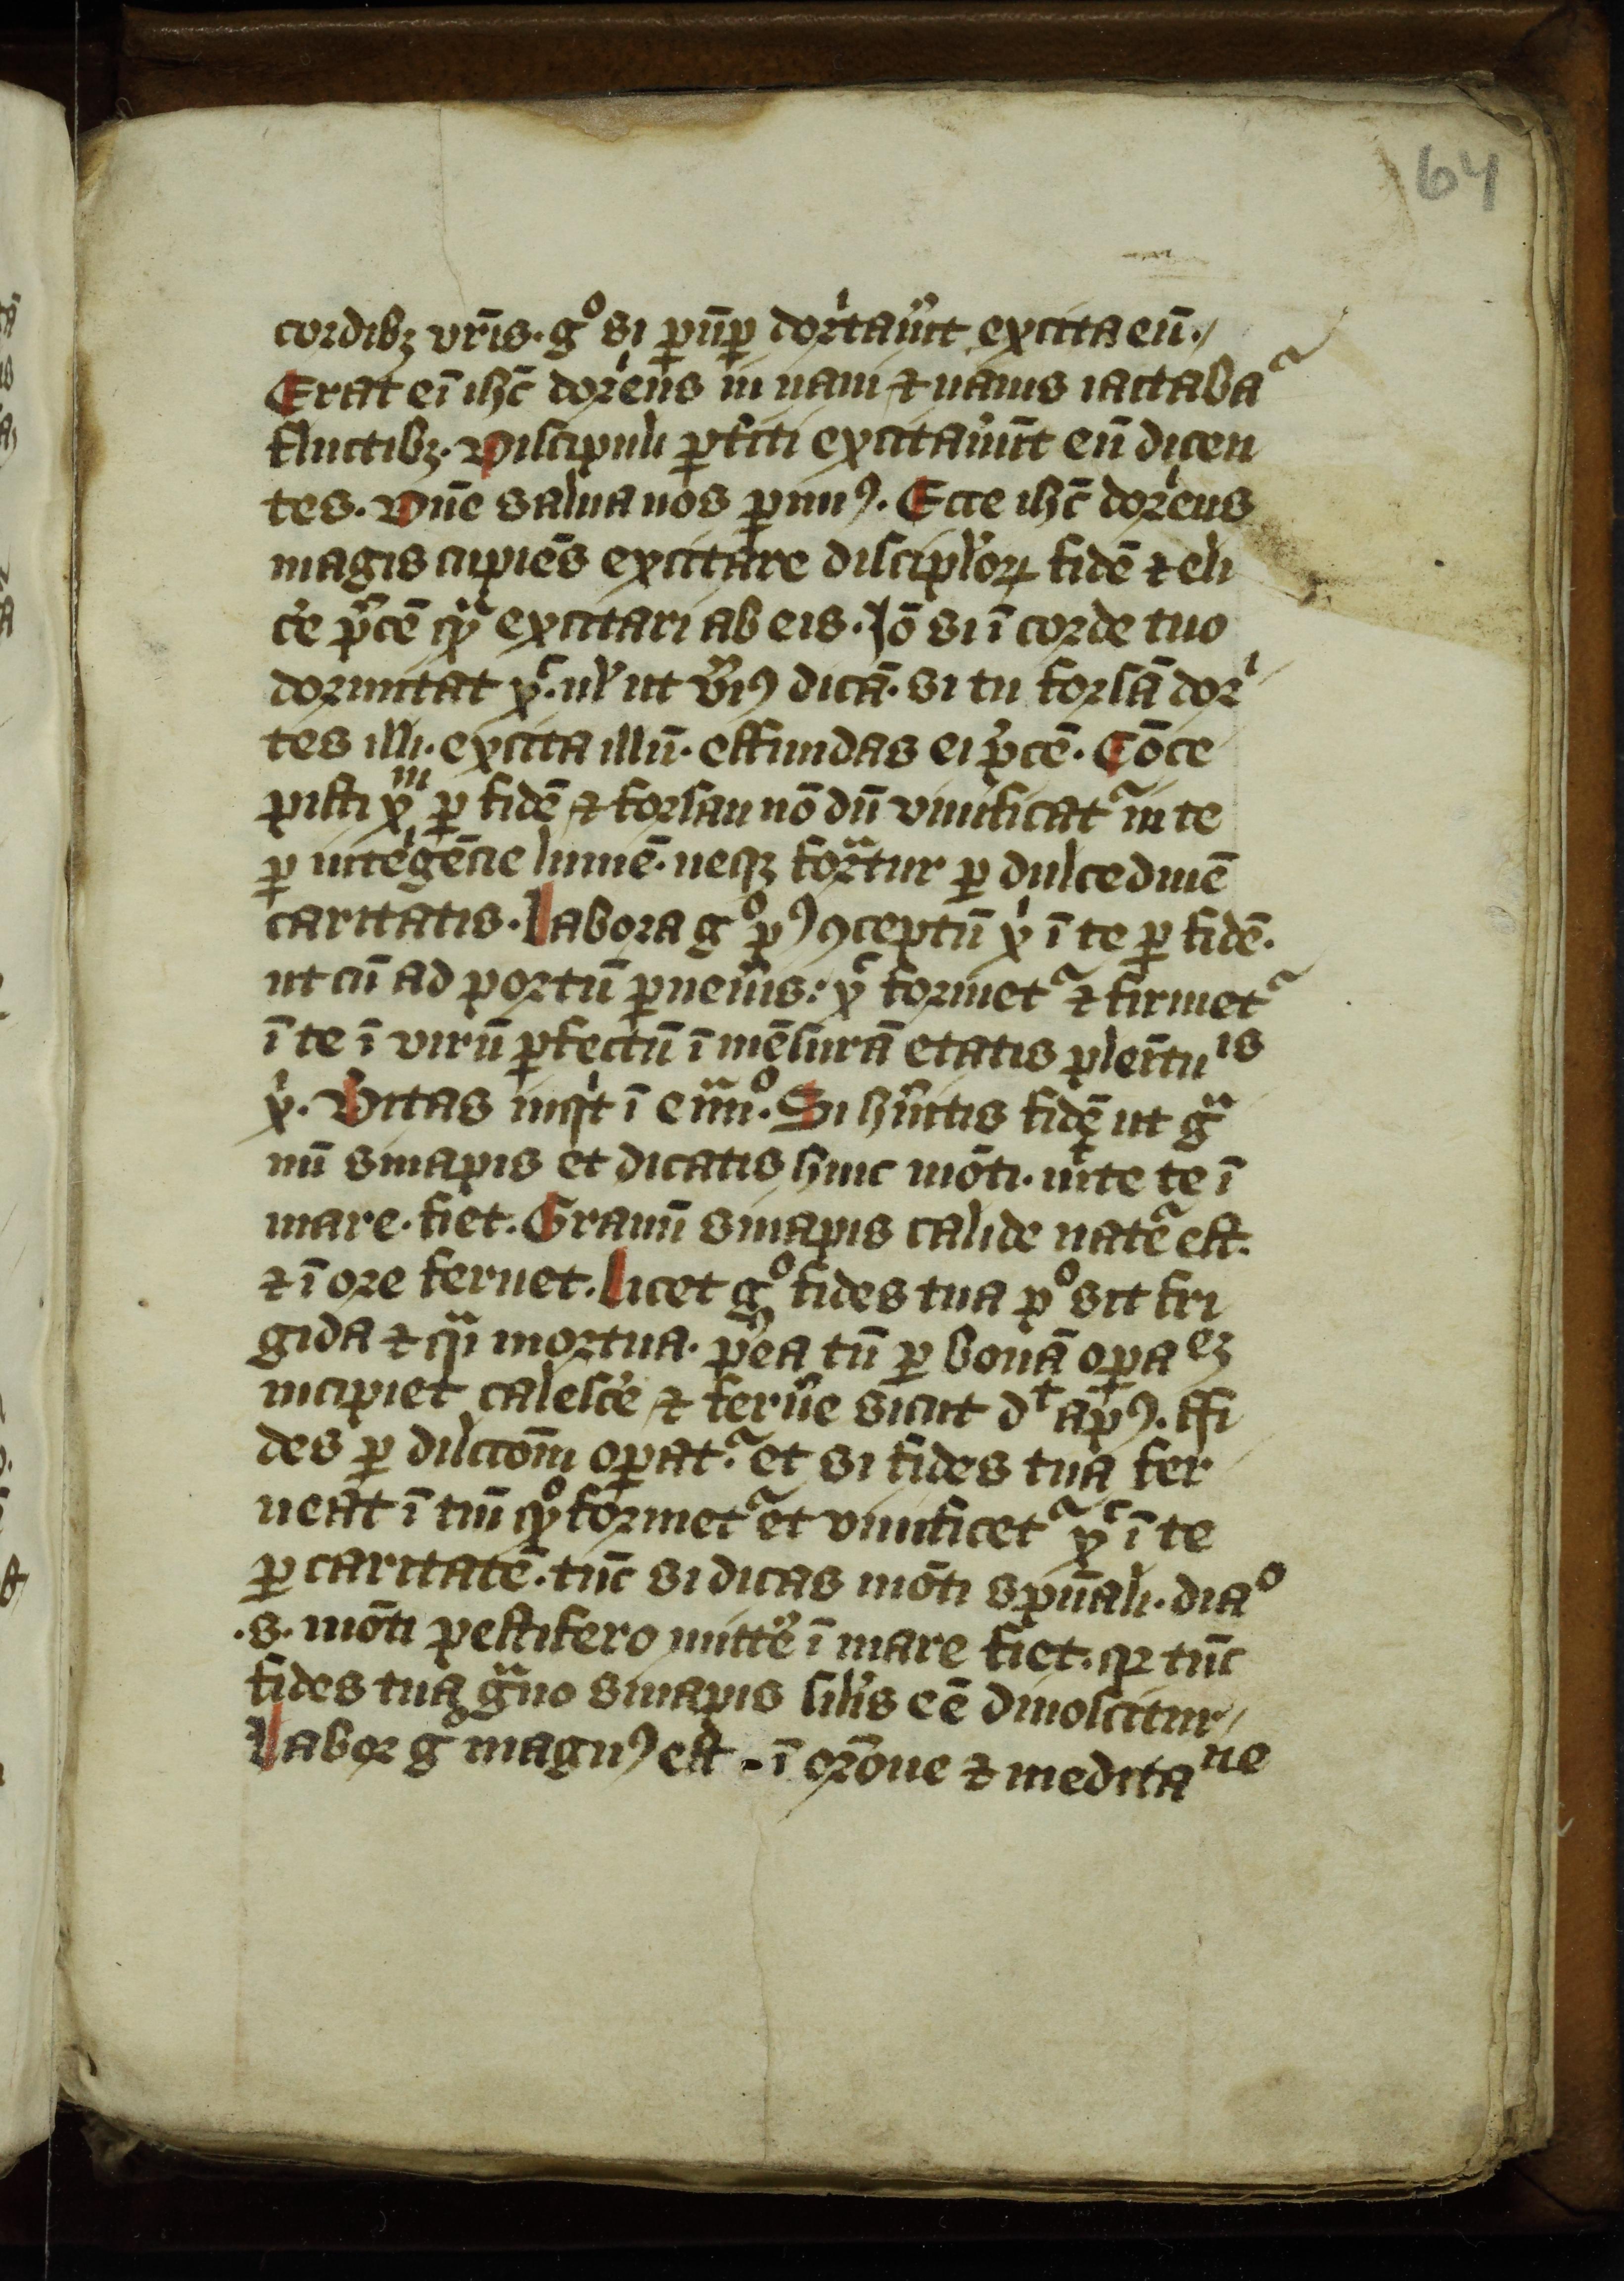 64
cordibȝ vr̄is. gͦ si ꝑūꝑ dorͥtau͛it excita eū.
Erat eī ihc̄ dorͥens in naui ⁊ nauis iactabaᷣ
fluctibȝ. Discipuli ꝑfc̄i excitauūt eū dicen
tes. Dūe salua nos ꝑimꝰ. Ecce ihc̄ dorͥens
magis cupiēs excitare discipl'oꝝ fidē ⁊ eli
c͛e p͛cē qͣ excitari ab eis. Jō si ī corde tuo
dormitat xᷤ. ul' ut v͛iꝰ dicā. si tu forsā dorͥ
tes illi. excita illū. effundas ei p͛cē. Cōce
pisti xᵐ ꝑ fidē ⁊ forsan nō dū viuificatᷣ in te
ꝑ intel'gēcie lumē. neqȝ formͣtur ꝑ dulcedinē
caritatis. Labora gͦ pꝰ ꝯceptū xͥ ī te ꝑ fidē.
ut cū ad portū ꝑuen͛is: xᷤ formetᷣ ⁊ firmetᷣ
ī te ī virū ꝑfectū ī mēsurā etatis pleītuͥˢ
xͥ. Uitas inqͥt ī euͣᵍͦ. Si hu͛itis fidē ut gͣ
nū sinapis et dicatis huic mōti. mitte te ī
mare. fiet. Granū sinapis calide natᷣe est.
⁊ ī ore feruet. Licet gͦ fides tua pͦ sit fri
gida ⁊ qͣi mortua. p͛ea tn̄ ꝑ bonā oꝑaeȝ
incipiet calesc͛e ⁊ feru͛e sicut dᵗ ap̄ꝰ. ffi
des ꝑ dilcc̄om̄ oꝑatᷣ. et si fides tua fer
ueat ī tm̄ qͦ formetᷣ et viuificetᷣ xᷤ ī te
ꝑ caritatē. tūc si dicas mōti spūali. diaͦ
.s. mōti pestifero mitt͛e ī mare fiet. qꝛ tūc
fides tua gͣno sinapis sil'is eē dinoscitur
Labor gͦ magnꝰ est . ī or̄one ⁊ meditaⁿᵉ